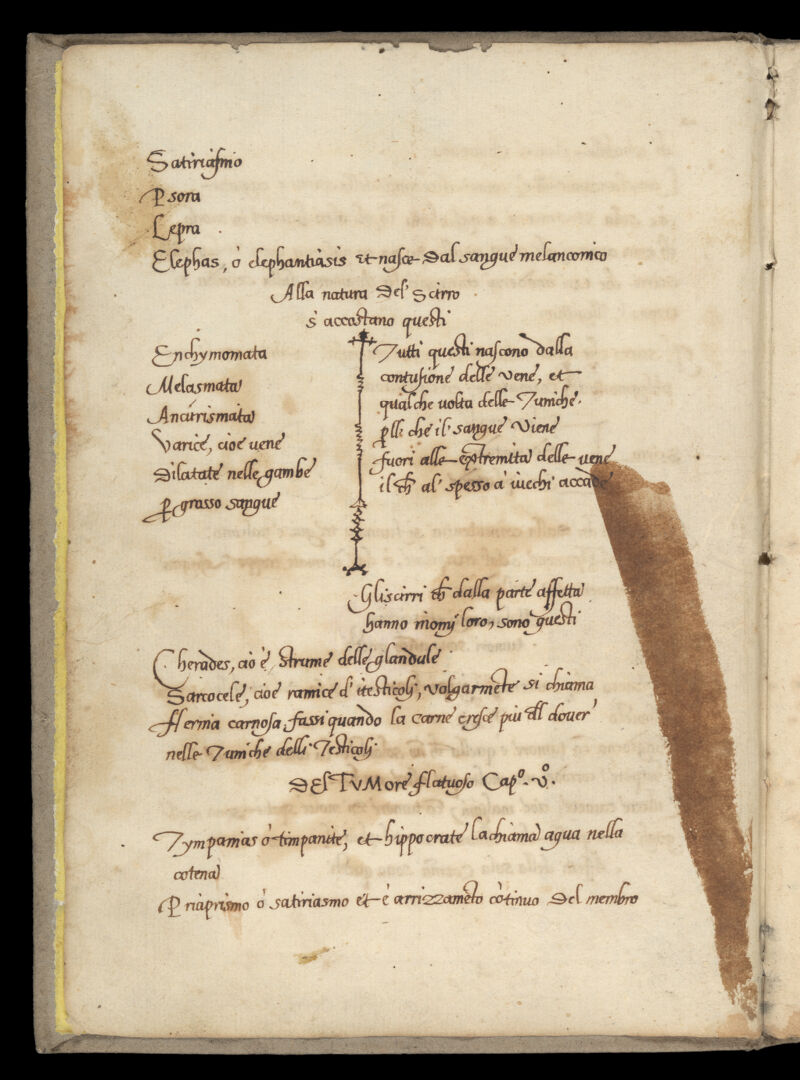 Satiriasmo
Psora
Lepra
Elephas, ò elephantiàsis et nasce dal sangue melanconico
Alla natura del Scirro
s'accostano questi
Enchymomata
Melasmata
Aneurismata
Varice, cioè uene
dilatate nelle gambe
ꝑ grosso sangue
Tutti questi nascono dalla
contusione delle vene, et
qualche uolta delle Tuniche
che il sangue viene
fuori alle extremità delle uene
il ch̄ al spesso à uechi accade
Gli scirri ch̄ dalla parte affetta
hanno inomi loro, sono questi
Cherades, ciò è, strume delle glandule
Sarcocele, cioè ramice d' itesticoli, volgarmēte si chiama
Hernia carnosa, fassi quando la carne cresce più dl̄ dover
nelle Tuniche delli Testicoli
DEl TVMore flatuoso Capº. vº.
Tympamas ò timpanite, et hippocrate la chiama aqua nella
cotena
Priaprismo ò satiriasmo et è arrizzamēto cōtinuo del membro